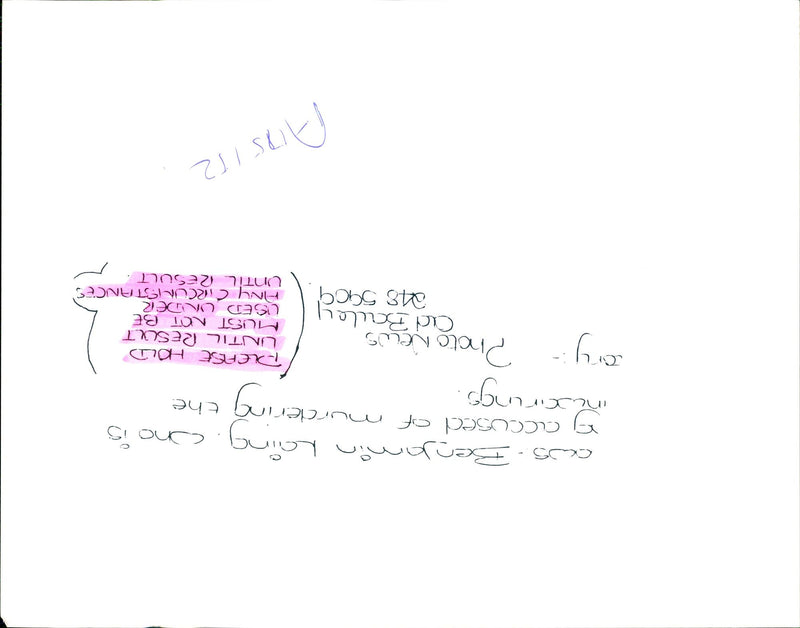 ows - Benjamin Laing. who is
g accused of murdering the
inwarings.
ory:- Photo News
Old Bailey
PLEASE HOLD
UNTIL RESULT
MUST NOT BE
USED UNDER
ANY CIRCUMSTANCES
UNTIL RESULT